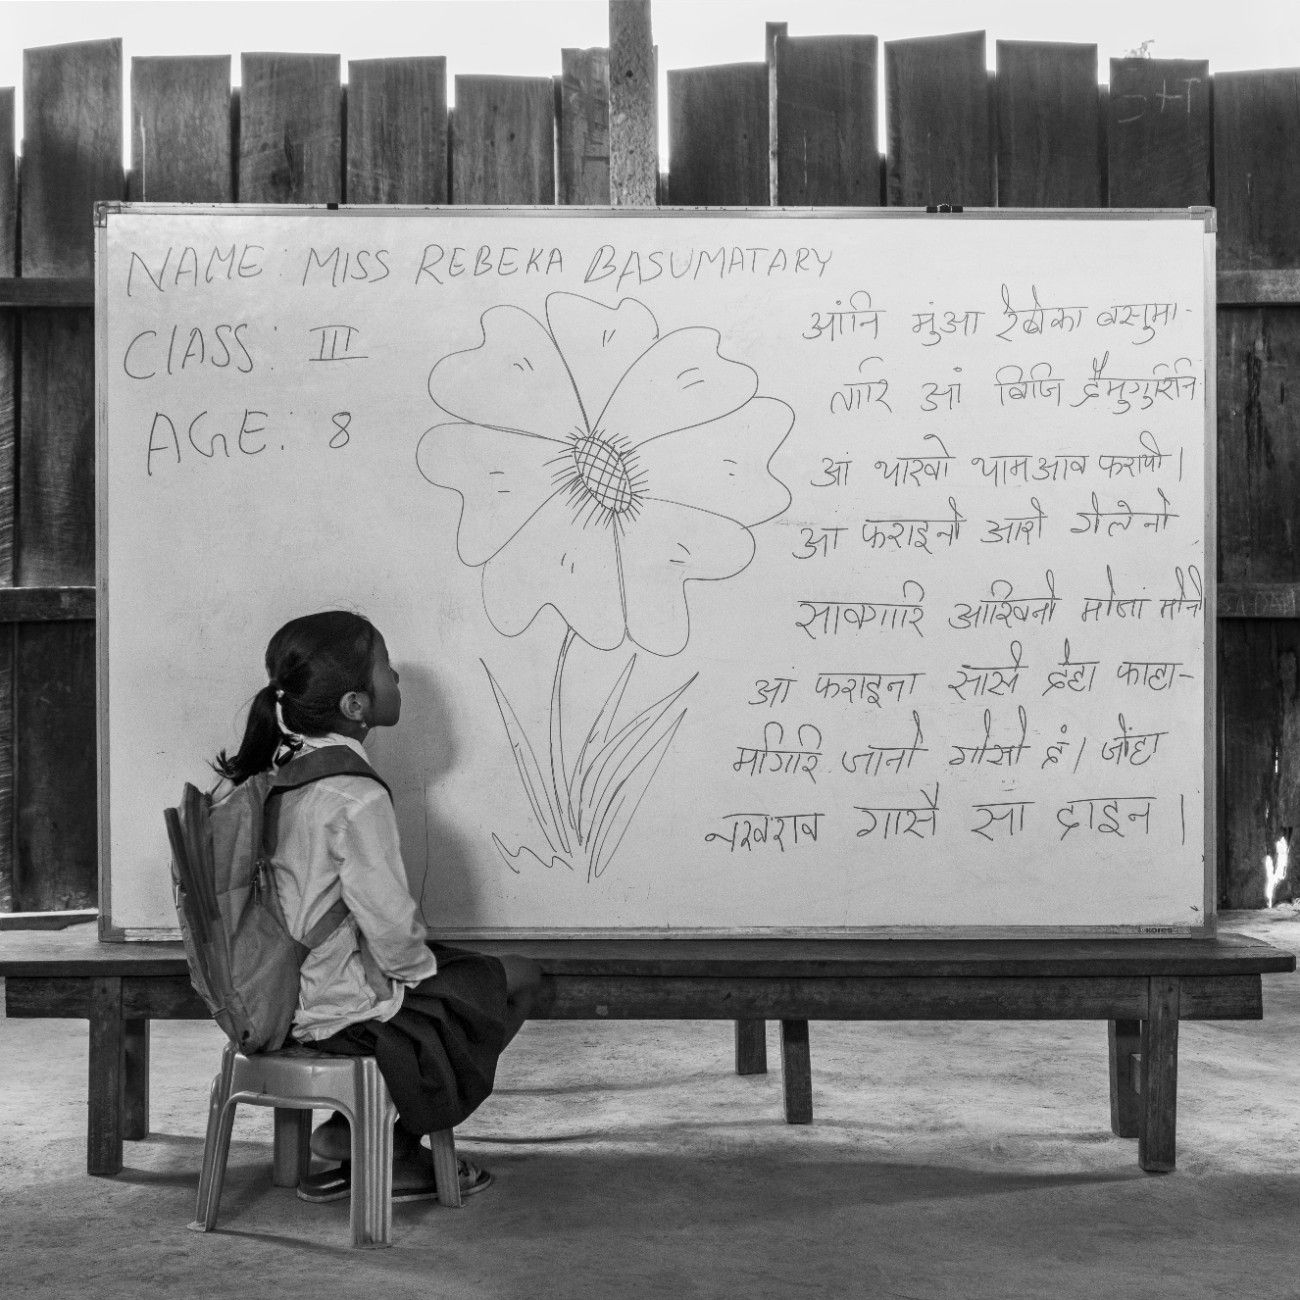 NAME: MISS REBEKA BASUMATARY
CLASS: III
AGE: 8
आंनि मुंआ रेबेका बसुमा-
तारि आं बिजि दैमुगुरिनि
आं थाखो थामआव फरायो।
आं फराइनो आरो गेलेनो
सावगारि आखिनो मोजां मोनो
आं फराइना सासे देहा फाहा-
मगिरि जानो गोसो दं। जोंहा
नखराव गासै सा द्राइन।
KORES